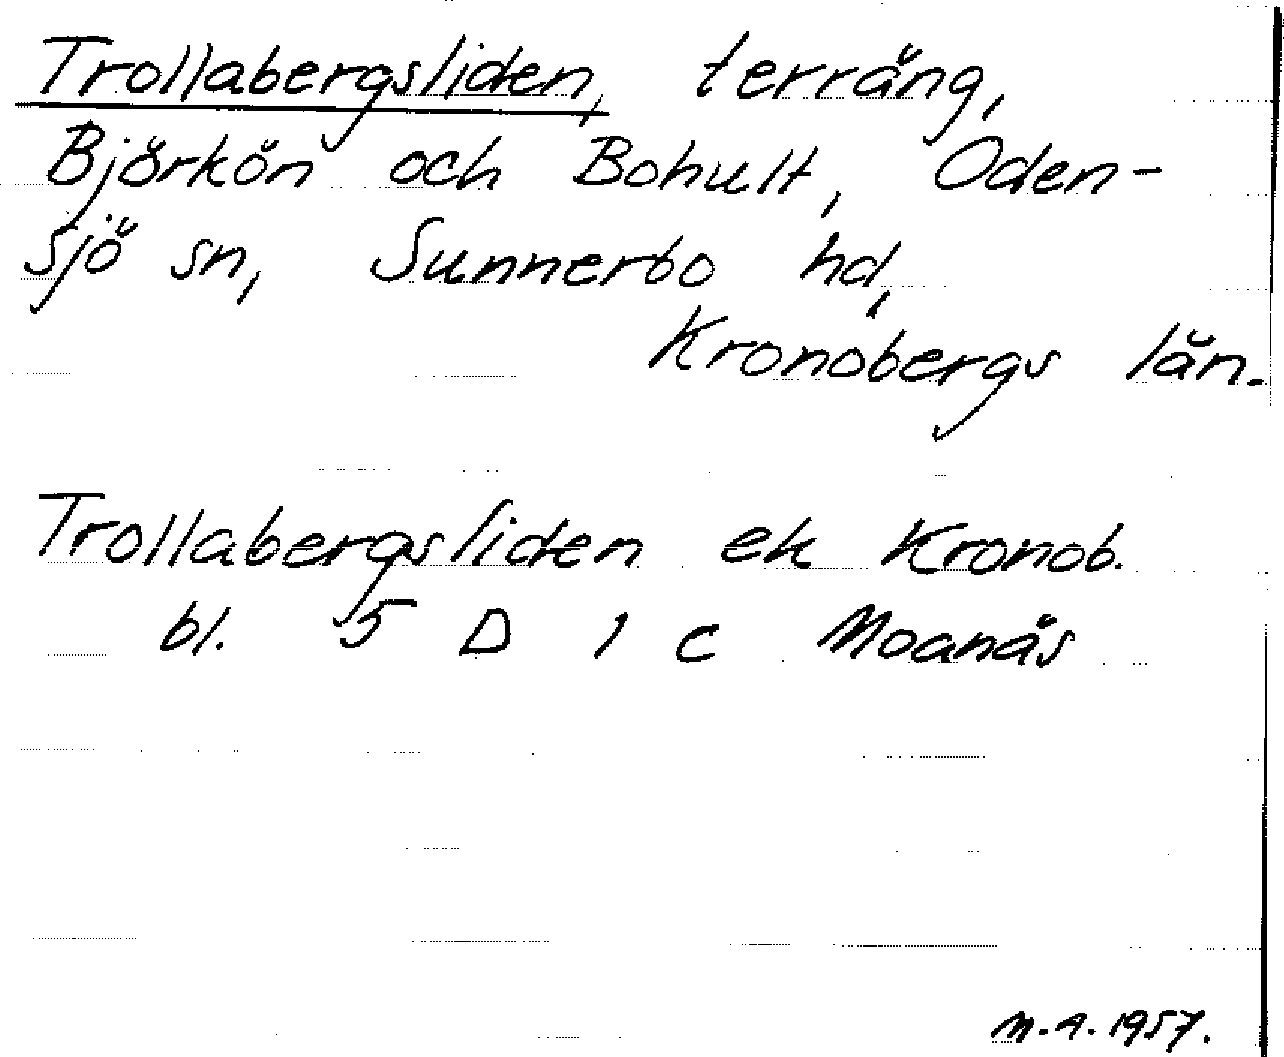 Trollabergsliden, terräng,
Björkön och Bohult, Oden-
sjö sn, Sunnerbo hd,
Kronobergs län.
Trollabergsliden ek Kronob.
bl. 5 D 1 c Moanäs
M.A. 1957.